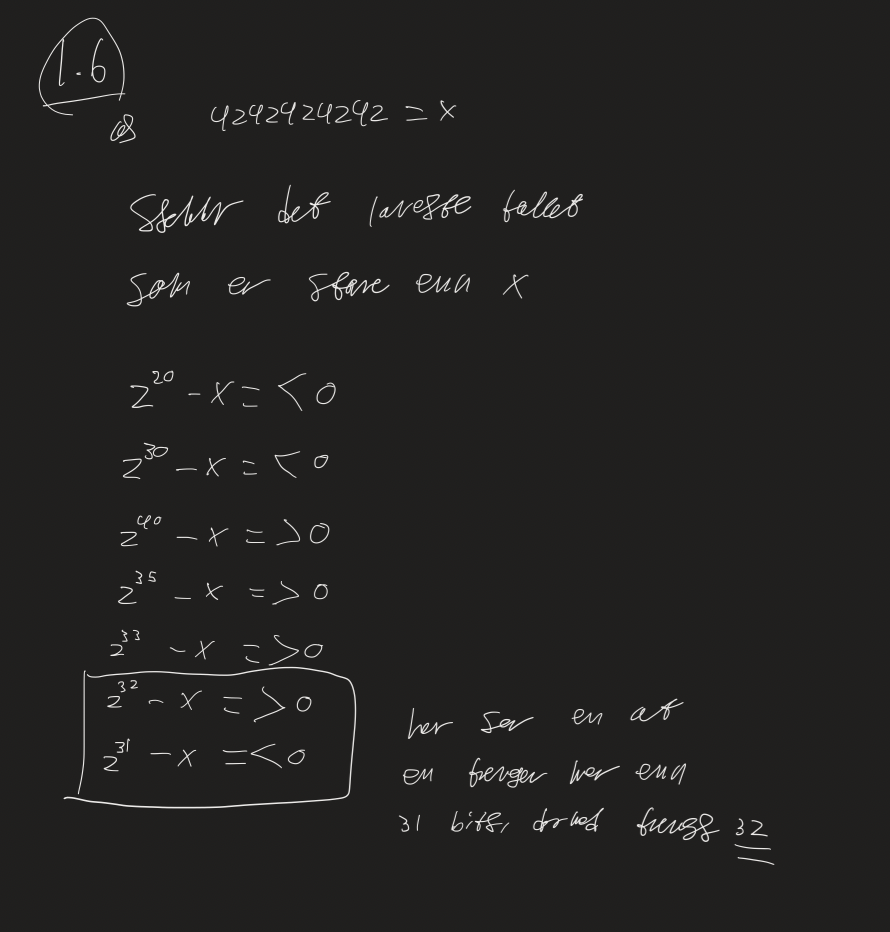 1.6
4242424242 = x
det laveste tallet
som er større enn x
2^20 - x = < 0
2^30 - x = < 0
2^40 - x = > 0
2^35 - x = > 0
2^33 - x = > 0
2^32 - x = > 0
2^31 - x = < 0
her ser en at
en trenger mer enn
31 bits, dermed trengs 32